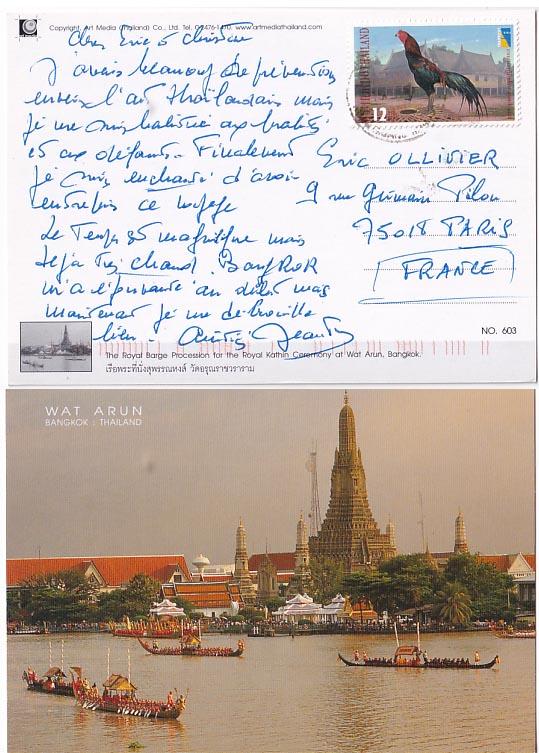 Copyright, Art Media (Thailand) Co., Ltd. Tel. 0-2476-1470, www.artmediathailand.com
cher Eric et Christine
J'avais beaucoup de
l'art thaïlandais mais
je me suis
et aux défauts. Finalement
je suis enchanté d'avoir
entrepris ce voyage
Le Temps est magnifique mais
déjà très chaud. BangKoK
m'a au début mais
maintenant je me débrouille
bien.
THAILAND
12
Eric OLLIVIER
9 rue Germain Pilon
75018 PARIS
FRANCE
NO. 603
The Royal Barge Procession for the Royal Kathin Ceremony at Wat Arun, Bangkok.
เรือพระที่นั่งสุพรรณหงส์ วัดอรุณราชวราราม
WAT ARUN
BANGKOK : THAILAND